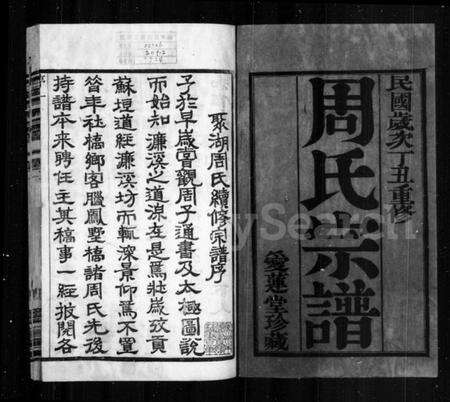 民國歲次丁丑重修
周氏宗譜
愛蓮堂珍藏
聚湖周氏續修宗譜序
子於早歲嘗觀周子通書及太極圖說
而始知濂溪之道源在是焉壯歲攷貢
蘇垣道經濂溪坊而輒深景仰焉不置
客臘鳳墅橋諸周氏先後
持譜本來聘任主其稿事一經披閱各